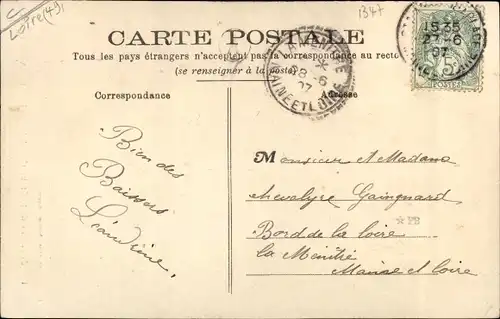 Loire (49)
1347
CARTE POSTALE
Tous les pays étrangers n'acceptent pas la correspondance au recto
(se renseigner à la poste)
LA MENITRE
28 -6
07
MAINE ET LOIRE
15 35
27 -6
07
5
POSTES
Correspondance
Adresse
Bien des
Baisers
Léandrine,
Monsieur et Madame
chevalyre Gaingnard
Bord de la loire
la Ménitré
Maine et loire